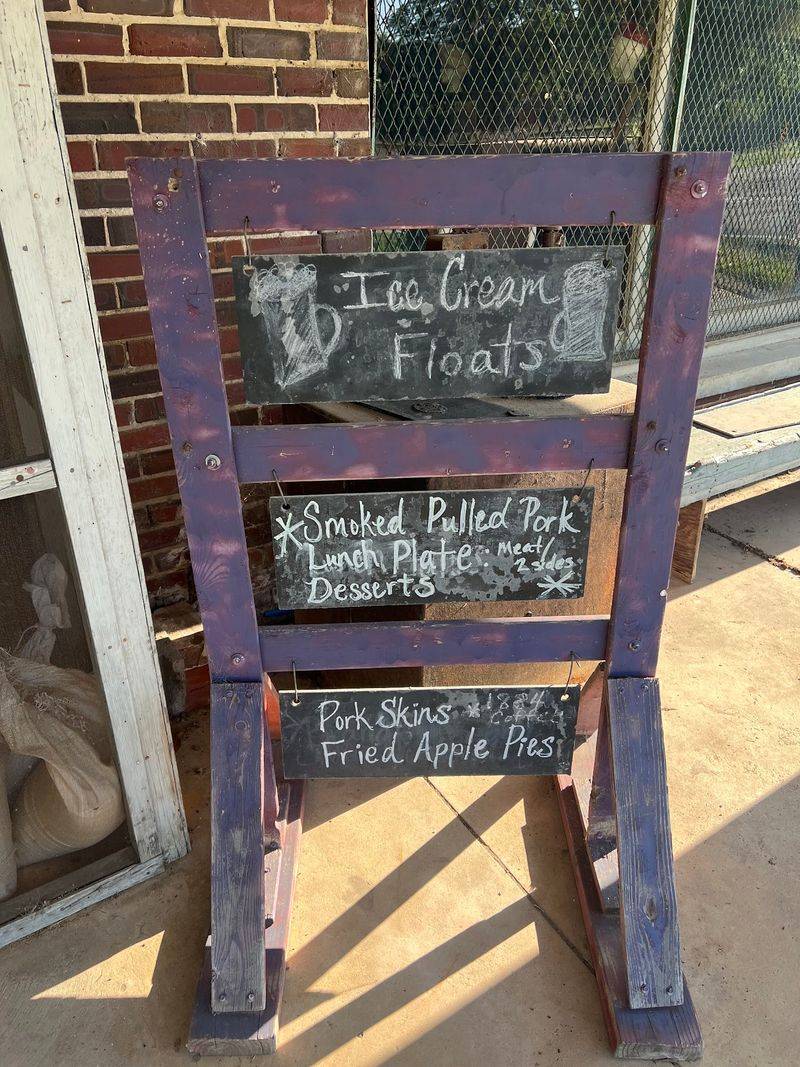 Ice Cream
Floats
*Smoked Pulled Pork
Lunch Plate: Meat/
2 sides
Desserts *
Pork Skins * 1884
Coffee
Fried Apple Pies